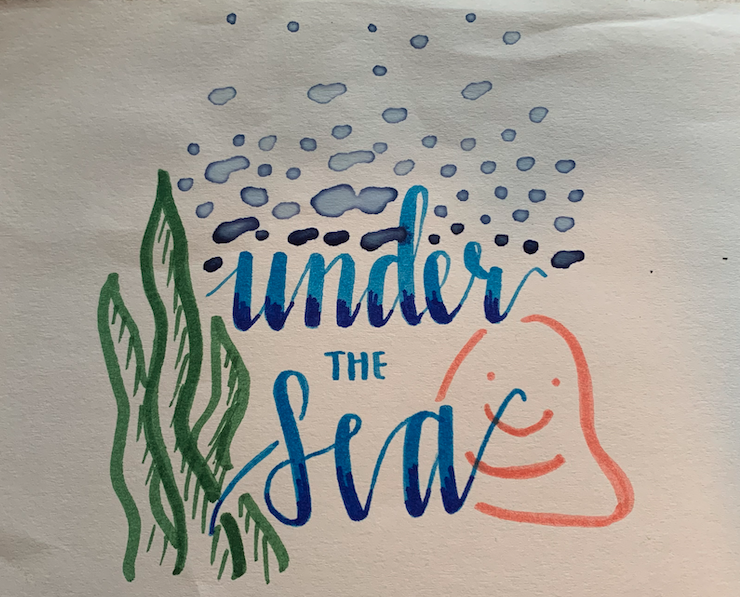 under
THE
Sea